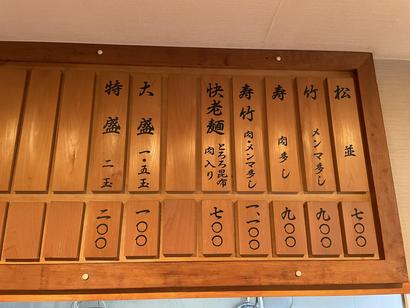 松 並 七〇〇
竹 メンマ多し 九〇〇
寿 肉多し 九〇〇
寿竹 肉・メンマ多し 一、一〇〇
快老麺 とろろ昆布 肉入り 七〇〇
大盛 一・五玉 一〇〇
特盛 二玉 二〇〇